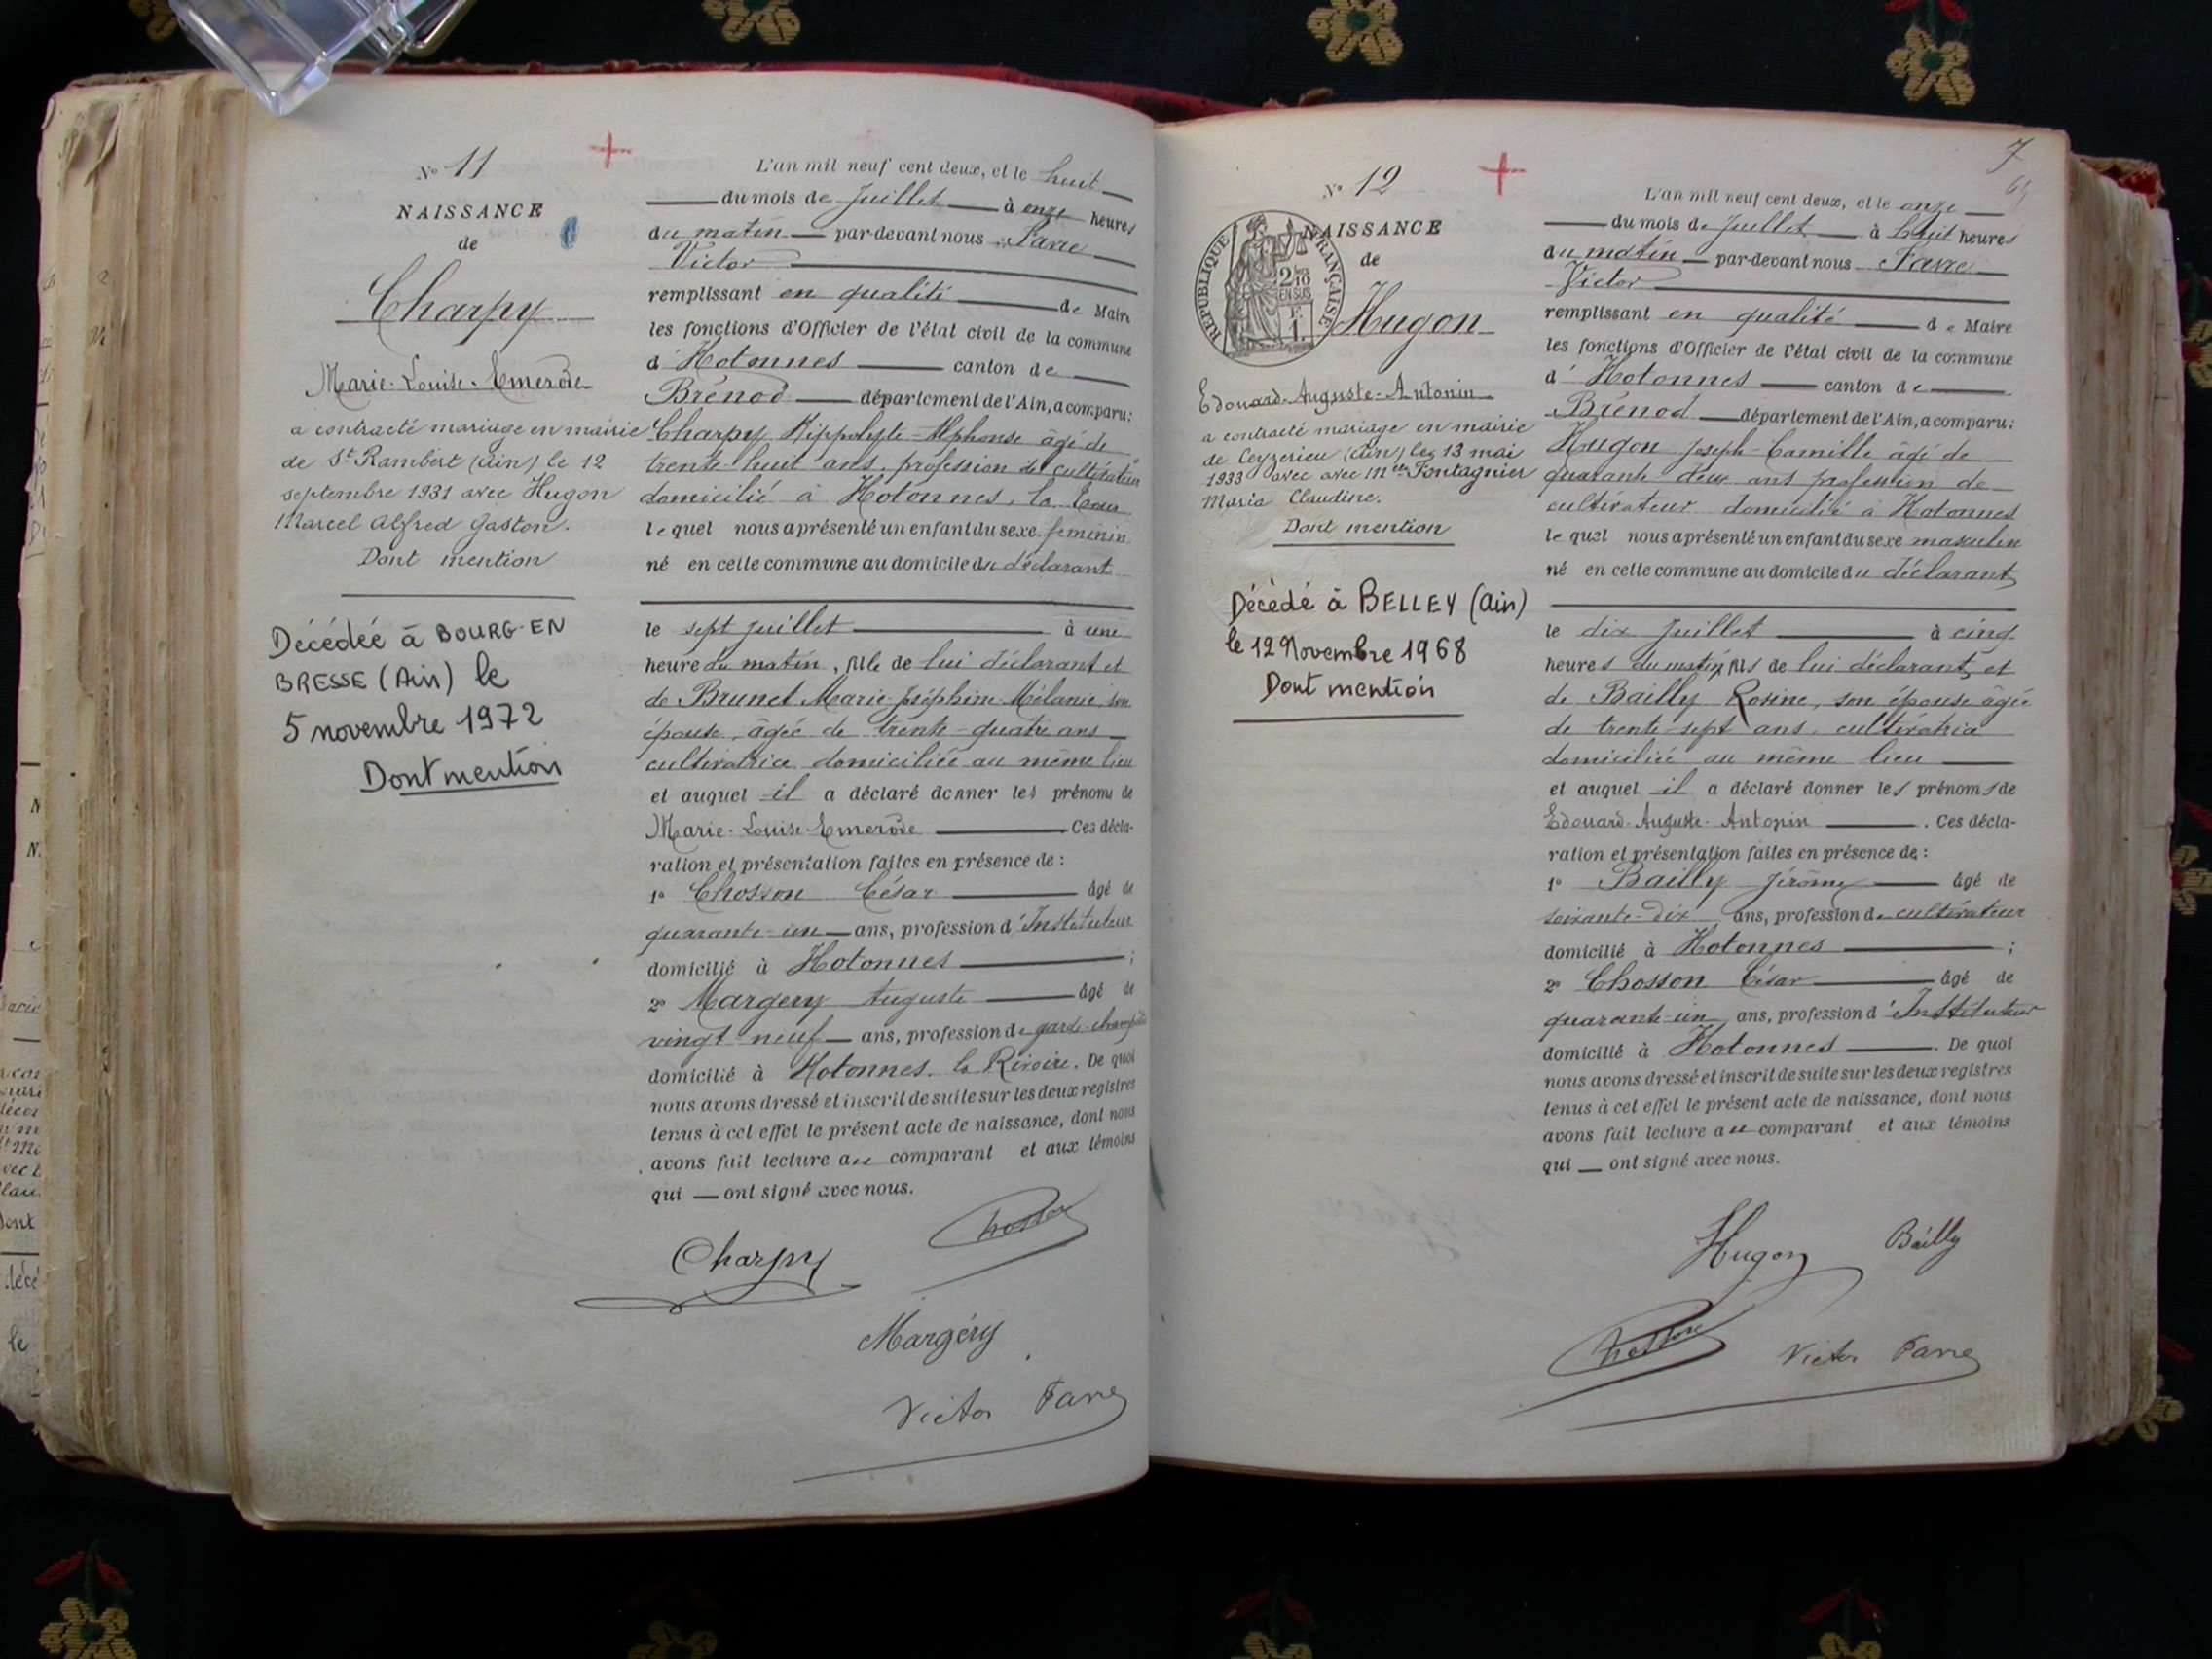 N° 11
NAISSANCE
de
Charpy
Marie-Louise-Emerode
a contracté mariage en mairie
de St Rambert (Ain) le 12
septembre 1931 avec Hugon
Marcel Alfred Gaston.
Dont mention
Décédée à BOURG-EN
BRESSE (Ain) le
5 novembre 1972
Dont mention
L'an mil neuf cent deux, et le huit
du mois de Juillet à onze heures
du matin par-devant nous Favre
Victor
remplissant en qualité de Maire
les fonctions d'Officier de l'état civil de la commune
d'Hotonnes canton de
Brénod département de l'Ain, a comparu:
Charpy Hippolyte-Alphonse âgé de
trente-huit ans, profession de cultivateur
domicilié à Hotonnes, la
le quel nous a présenté un enfant du sexe féminin
né en cette commune au domicile du déclarant
le sept Juillet à une
heure du matin, fille de lui déclarant et
de Brunet Marie-Joséphine-Mélanie, son
épouse, âgée de trente-quatre ans
cultivatrice domiciliée au même lieu
et auquel il a déclaré donner les prénoms de
Marie-Louise-Emerode Ces décla-
ration et présentation faites en présence de :
1° Chosson César âgé de
quarante-un ans, profession d'Instituteur
domicilié à Hotonnes ;
2° Margery Auguste âgé de
vingt-neuf ans, profession de garde-champêtre
domicilié à Hotonnes, la Rivoire. De quoi
nous avons dressé et inscrit de suite sur les deux registres
tenus à cet effet le présent acte de naissance, dont nous
avons fait lecture au comparant et aux témoins
qui ont signé avec nous.
Charpy
Chosson
Margéry
Victor Favre
7
N° 12
NAISSANCE
de
RÉPUBLIQUE FRANÇAISE
2/10
EN SUS
Hugon
Edouard-Auguste-Antonin
a contracté mariage en mairie
de Ceyzerieu (Ain) les 13 mai
1933 avec avec Mlle Fontagnier
Maria Claudine.
Dont mention
Décédé à BELLEY (Ain)
le 12 Novembre 1968
Dont mention
L'an mil neuf cent deux, et le onze
du mois de Juillet à huit heures
du matin par-devant nous Favre
Victor
remplissant en qualité de Maire
les fonctions d'Officier de l'état civil de la commune
d'Hotonnes canton de
Brénod département de l'Ain, a comparu:
Hugon Joseph-Camille âgé de
quarante deux ans profession de
cultivateur domicilié à Hotonnes
le quel nous a présenté un enfant du sexe masculin
né en cette commune au domicile du déclarant,
le dix Juillet à cinq
heures du matin, fils de lui déclarant, et
de Bailly Rosine, son épouse âgée
de trente-sept ans, cultivatrice
domiciliée au même lieu
et auquel il a déclaré donner les prénoms de
Edouard-Auguste-Antonin . Ces décla-
ration et présentation faites en présence de :
1° Bailly Jérôme âgé de
soixante-dix ans, profession de cultivateur
domicilié à Hotonnes ;
2° Chosson César âgé de
quarante-un ans, profession d'Instituteur
domicilié à Hotonnes . De quoi
nous avons dressé et inscrit de suite sur les deux registres
tenus à cet effet le présent acte de naissance, dont nous
avons fait lecture au comparant et aux témoins
qui ont signé avec nous.
Hugon
Bailly
Chosson
Victor Favre